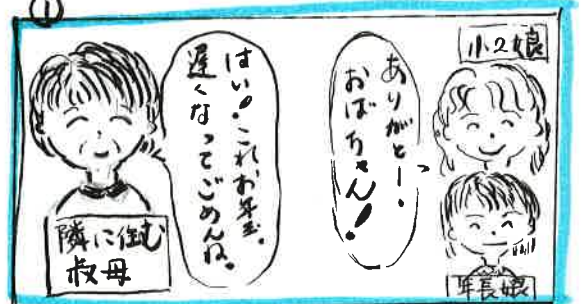 ①
小2娘
ありがとー、
おばちゃん!
年長娘
はい!これお年玉。
遅くなってごめんね。
隣に住む
叔母